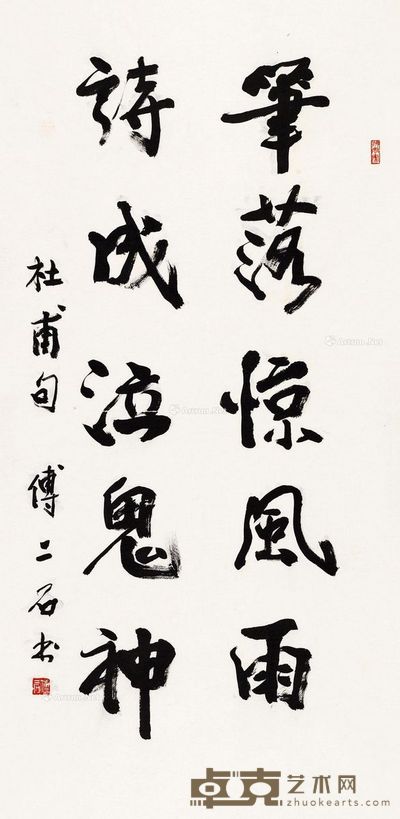 筆落惊風雨
詩成泣鬼神
杜甫句 傅二石书
卓克艺术网
zhuokearts.com